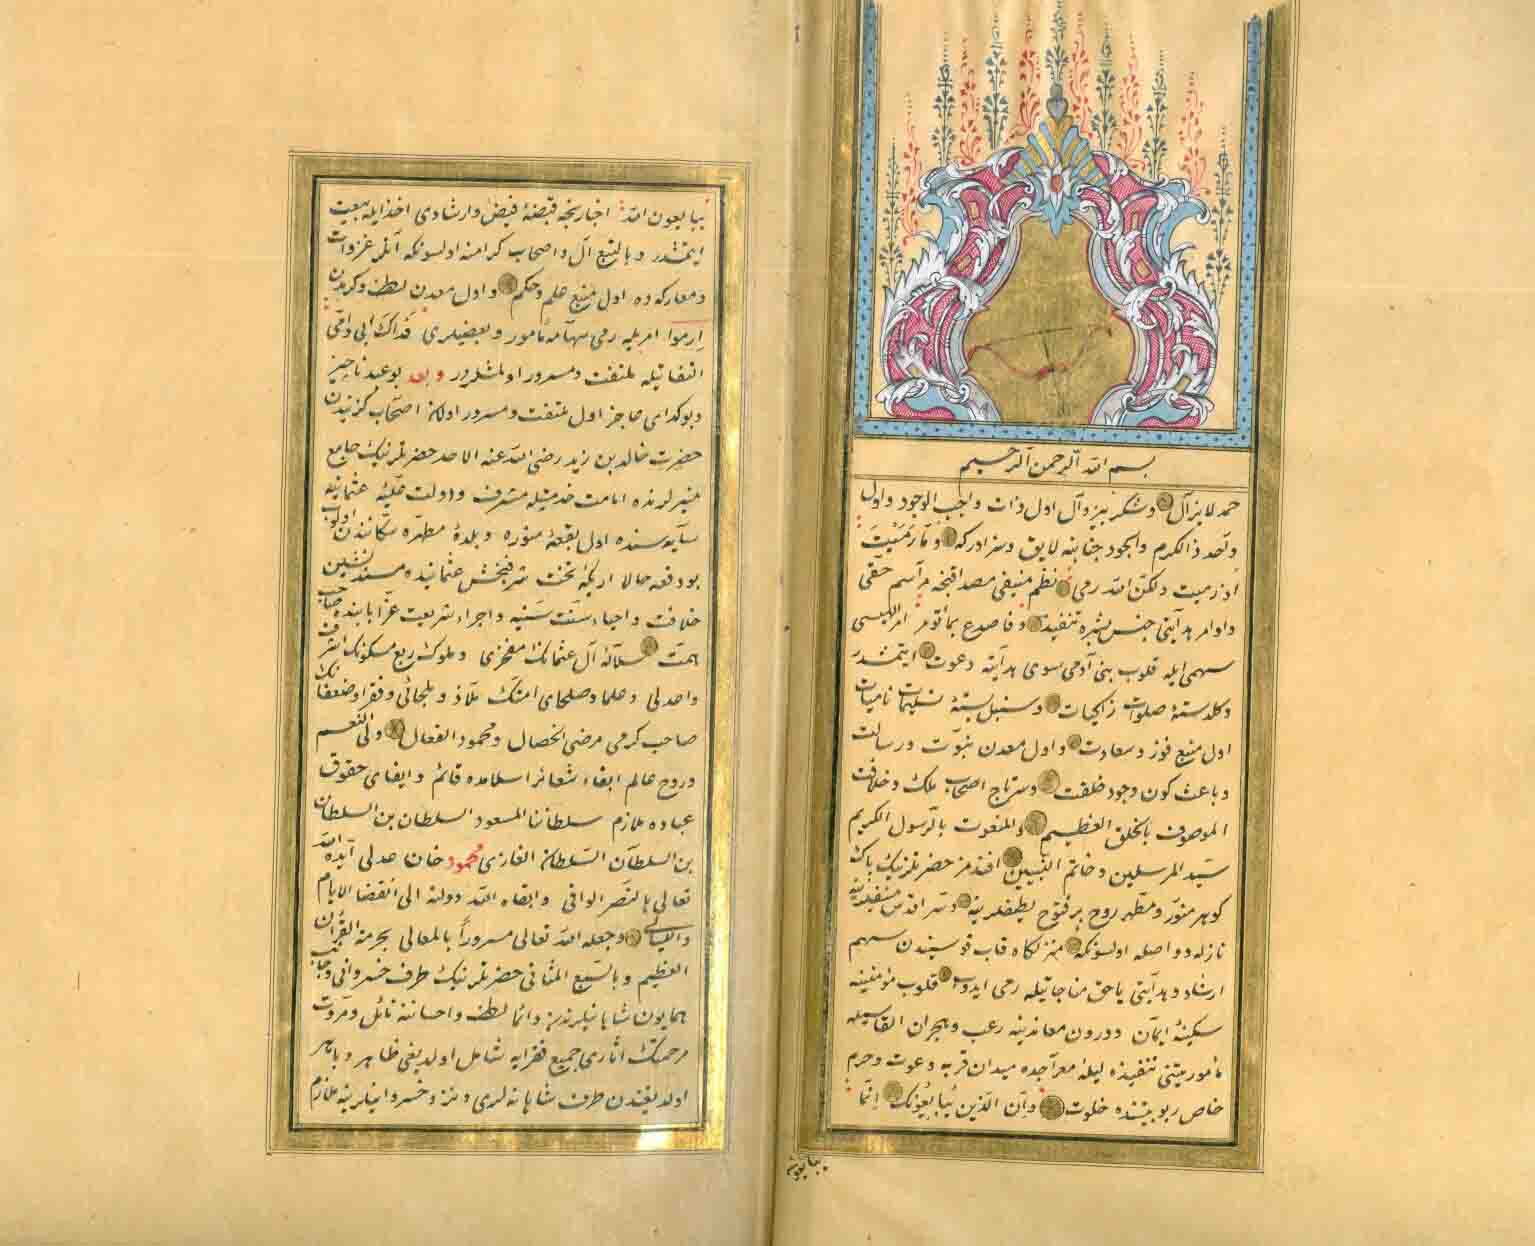 بسم الله الرحمن الرحيم
حمد لا يزال و شكر بيزوال اول ذات واجب الوجود و اول
واحد ذالكرم والجود جنابنه لايق و سزادركه و مَا رَمَيْتَ
اذ رميت ولكن الله رمى نظم منيفى مصداقنجه مراسم حقى
و اوامر هدايتى جنس بشره تنفيذ و فاصدع بما تؤمر امر الليسى
سهمى ايله قلوب بنى آدمى سوى هدايته دعوت ايتمشدر
و كلدستۀ صلوات زاكيات و سنبل بستۀ تسليمات ناميات
اول منبع فوز و سعادت و اول معدن نبوت و رسالت
و باعث كون وجود خلقت و سرتاج اصحاب ملك و خلافت
الموصوف بالخلق العظيم والمنعوت بالرسول الكريم
سيد المرسلين و خاتم النبيين افندمز حضرتلرينك پاك
كوهر منور و مطهر روح پرفتوح لطيفلرينه و سر اقدس منيفلرينه
نازله و واصله اولسونكه منزلكاه قاب قوسيندن سهم
ارشاد و هدايتى ياحق مناجاتيله رمى ايدوب قلوب مؤمنينه
سكينۀ ايمان و درون معاندينه رعب و هجران القاسيله
مأموريتنى تنفيذه ليلۀ معراجده ميدان قربه دعوت و حرم
خاص ربوبيتنده خلوت و اِن الذين يُبَايِعُونَكَ اِنَّمَا
يبايعون
يبايعون الله اخبارنجه قبضۀ فيض و ارشادى اخذ ايله بيعت
ايتمشدر و بالتبع آل و اصحاب كرامنه اولسونكه آنلر غزوات
و معاركده اول منبع علم و حكم و اول معدن لطف و كرمدن
اِرموا امريله رمى سهامه مأمور و بعضيلرى فداك ابى و امّى
التفاتيله ملتفت و مسرور اولمشلردر و بعد بو عبد ناچيز
و بو كداى عاجز اول ملتفت و مسرور اولان اصحاب كزيندن
حضرت خالد بن زيد رضى الله عنه الاحد حضرتلرينك جامع
منيرلرنده امامت خدمتيله مشرف و دولت عليۀ عثمانيه
سايه سنده اول بقعۀ منوره و بلدۀ مطهره سكانندن اولوب
بو دفعه حالا اريكۀ تخت شرفبخش عثمانيده مسندنشين
خلافت و احياء سنت سنيه و اجراء شريعت غرا بابنده صاحب
همت سلالۀ آل عثمانك مفخرى و ملوك ربع مسكونك اشرف
واحدلى و علما و صلحاى امتك ملاذ و ملجائى و فقرا و ضعفانك
صاحب كرمى مرضى الخصال و محمود الفعال ولى النعم
و روح عالم ابقاء شعائر اسلامده قائم و ايفاى حقوق
عباده ملازم سلطاننا المسعود السلطان بن السلطان
بن السلطان السلطان الغازى محمود خان عدلى ايده الله
تعالى بالنصر الوافى و ابقاه الله دولته الى انقضا الايام
والليالى و جعله الله تعالى مسروراً بالمعالى بحرمة القرآن
العظيم و بالسبع المثانى حضرتلرينك طرف خسروانى و جانب
همايون شاهانه لرندن دائما لطف و احساننه نائل و مروت
مرحمتك اثارى جميع فقرايه شامل اولديغى ظاهر و باهر
اولديغندن طرف شاهانه لرى و نزد خسروانيلرينه ملازم